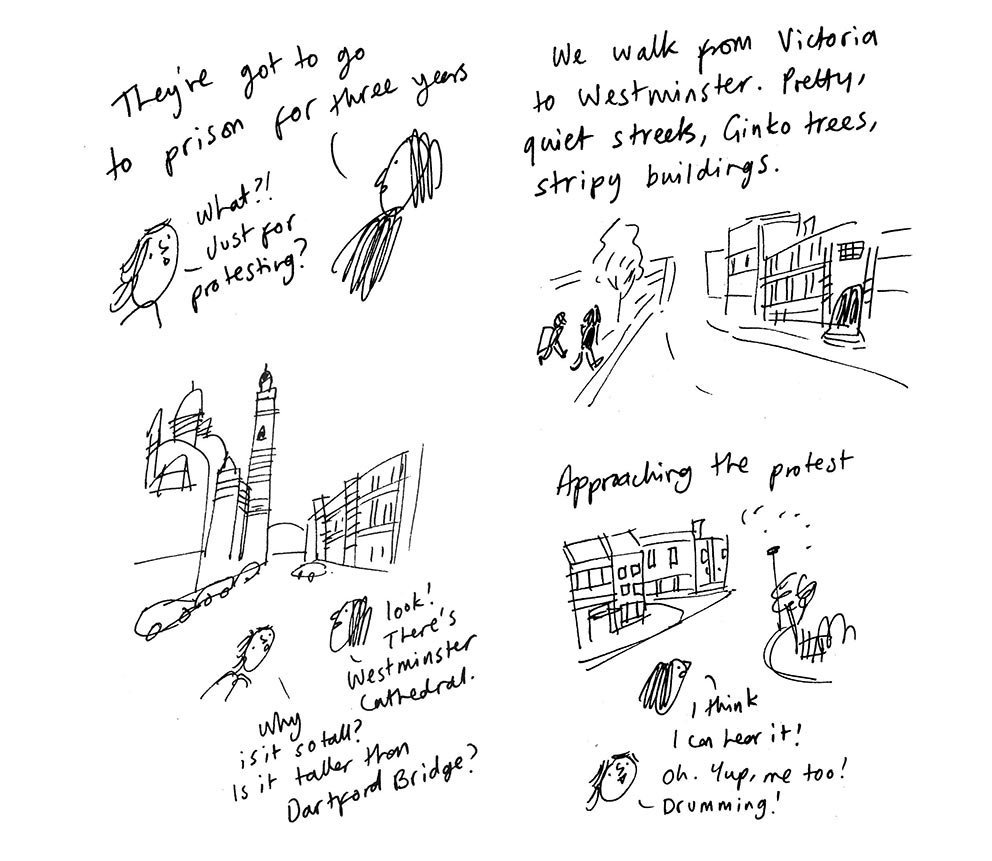 They're got to go
to prison for three years
What?!
Just for
protesting?
We walk from Victoria
to Westminster. Pretty,
quiet streets, Ginko trees,
stripy buildings.
look!
There's
Westminster
Cathedral.
Why
is it so tall?
Is it taller than
Dartford Bridge?
Approaching the protest
I think
I can hear it!
Oh. Yup, me too!
Drumming!